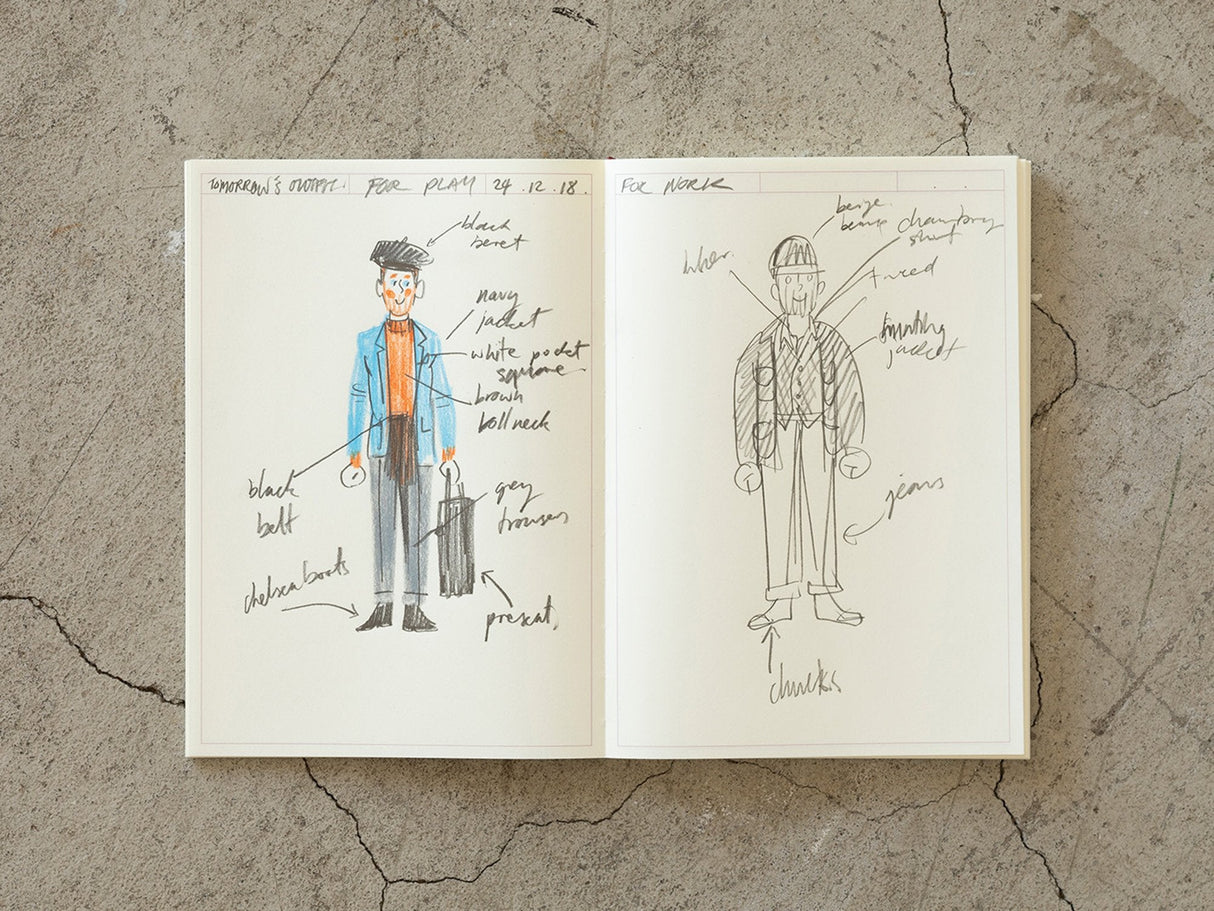 TOMORROW'S OUTFIT.
FOR PLAY
24.12.18.
black
beret
navy
jacket
white pocket
square
brown
roll neck
black
belt
grey
trousers
chelsea boots
present,
FOR WORK
beige
chambray
shirt
jacket
jeans
chucks